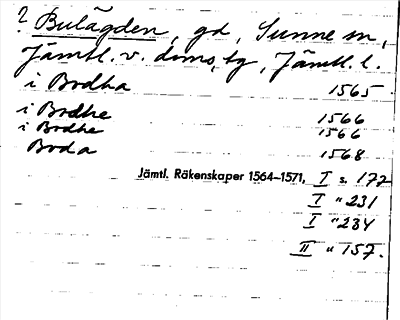 ? Bulägden, gd, Sunne sn,
Jämtl. v. doms. tg, Jämtl. l.
i Brdha 1565
i Brdhe 1566
i Brdhe 1566
Boda 1568
Jämtl. Räkenskaper 1564–1571, I s. 172
I " 231
I " 234
II " 157.